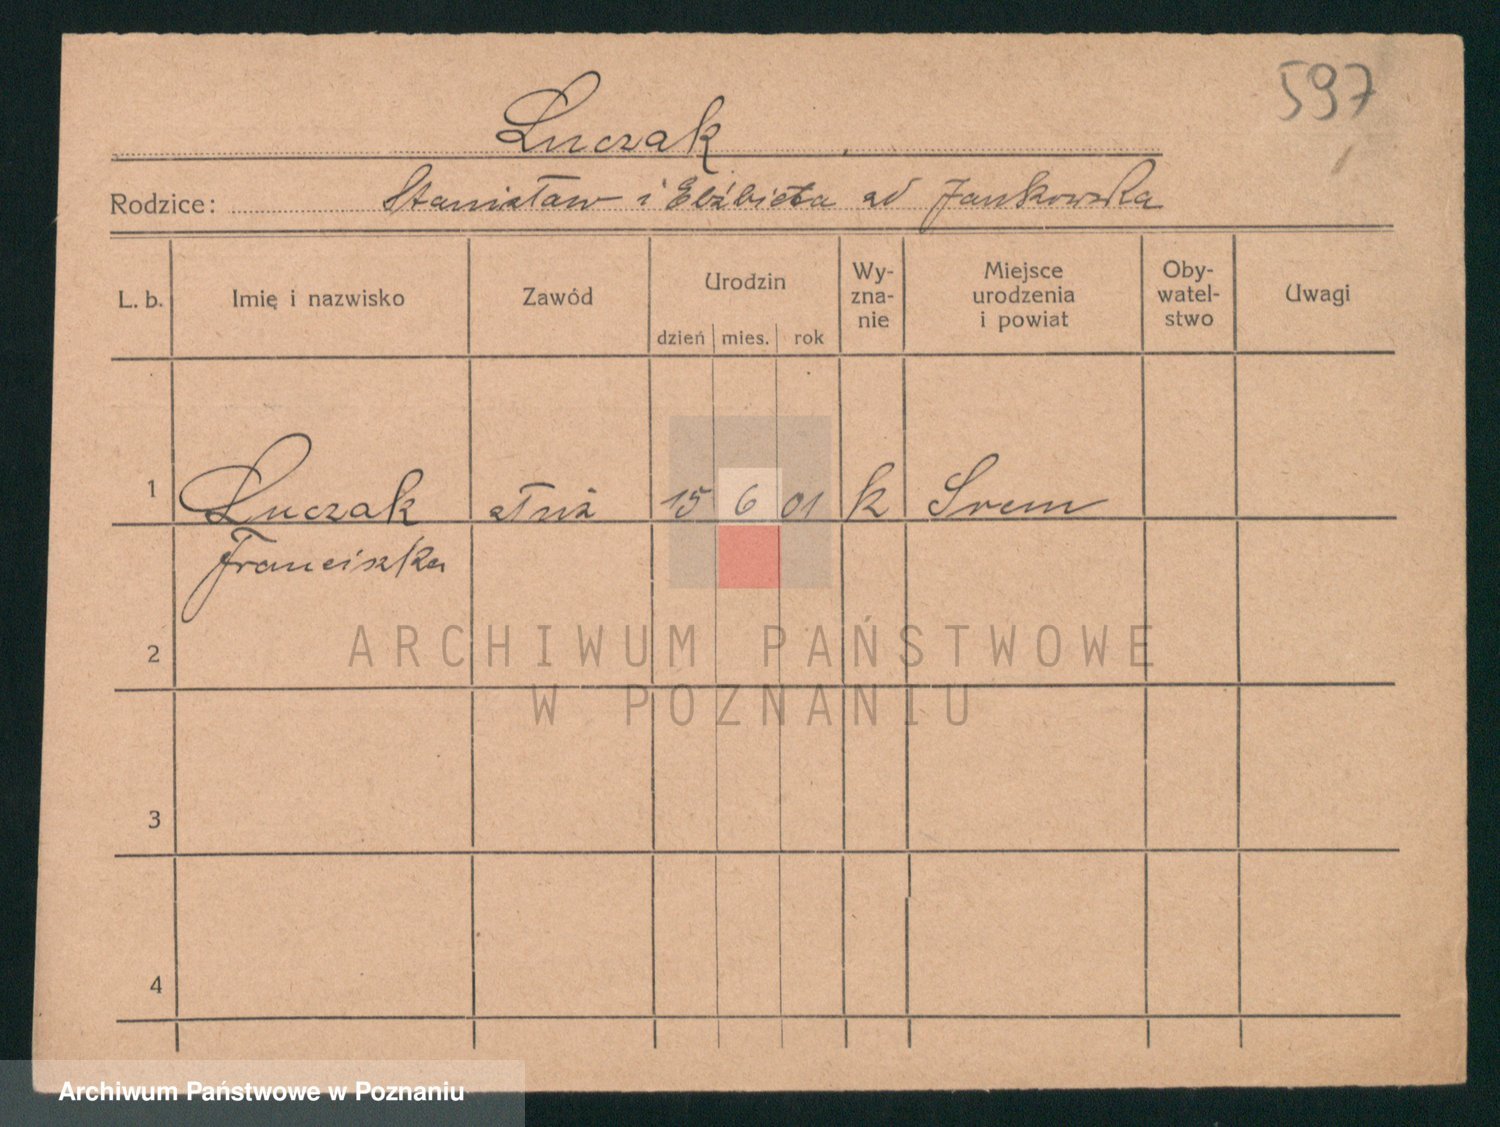 597
Łuczak
Rodzice: Stanisław i Elżbieta zd Jankowska
L. b. Imię i nazwisko Zawód Urodzin dzień mies. rok Wy-zna-nie Miejsce urodzenia i powiat Oby-watel-stwo Uwagi
1 Łuczak służ 15 6 01 k Śrem
Franciszka
2
ARCHIWUM PAŃSTWOWE
W POZNANIU
3
4
Archiwum Państwowe w Poznaniu